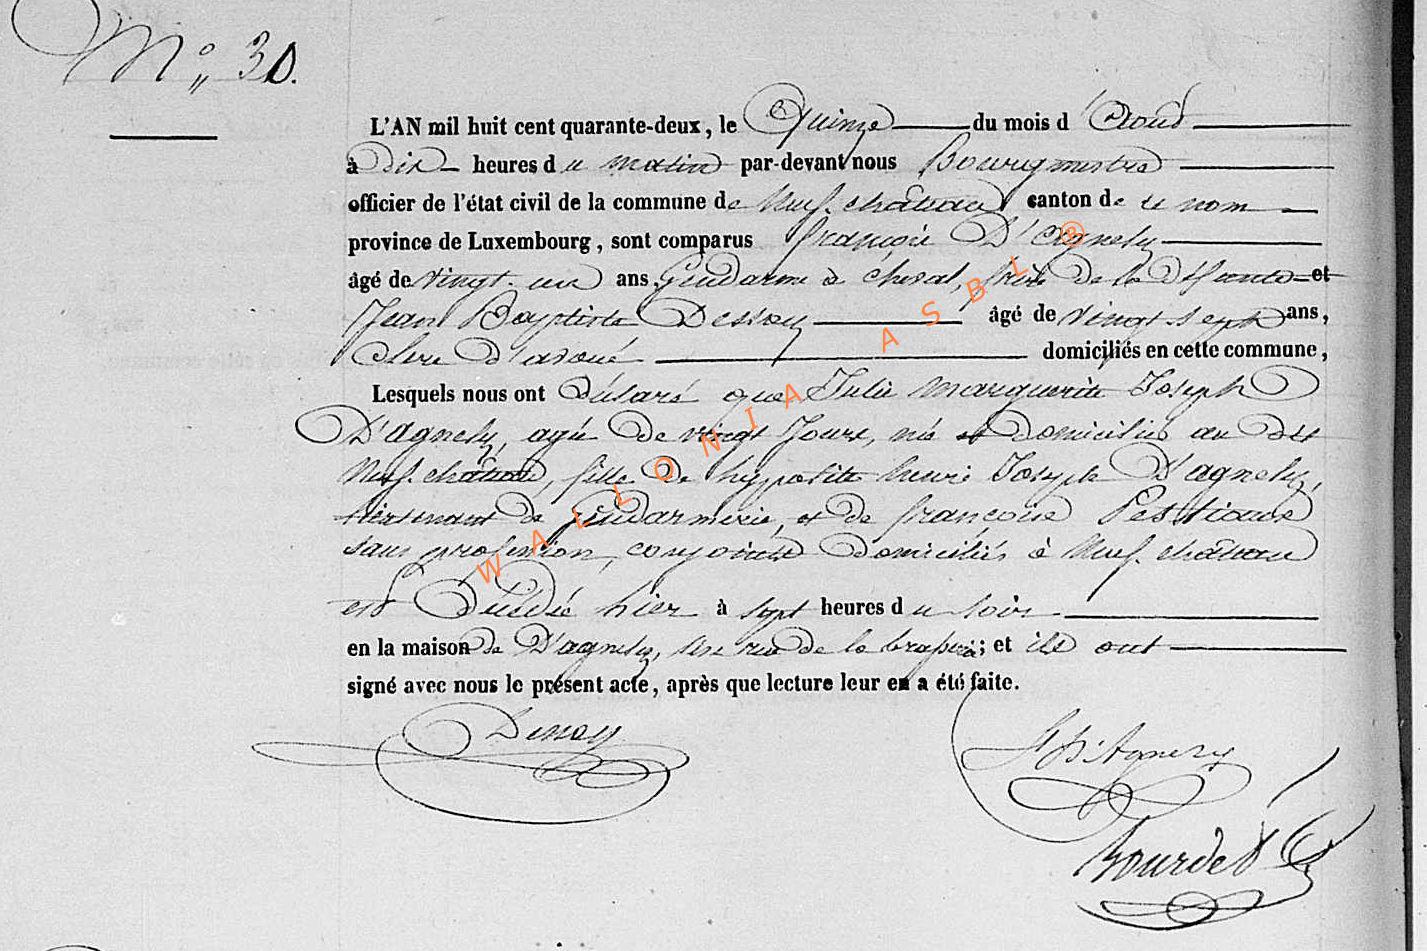 N° 30.
L'AN mil huit cent quarante-deux, le Quinze du mois d'Aoust
à dix heures du matin par-devant nous Bourgmestre
officier de l'état civil de la commune de Neufchâteau canton de ce nom
province de Luxembourg, sont comparus françois D'Agnely
âgé de vingt-un ans, Gendarme à cheval, frère de la défunte et
Jean Baptiste Dessoy âgé de vingt-sept ans,
Clerc d'avoué domiciliés en cette commune,
Lesquels nous ont déclaré que Julie Marguerite Joseph
D'agnely, agée de vingt Jours, née et domiciliée au dit
Neufchâteau, fille de hyppolite henri Joseph D'agnely,
lieutenant de gendarmerie, et de françoise
sans profession, conjoints domiciliés à Neufchâteau
est décédée hier à sept heures du soir
en la maison de D'agnely, sise rue de la brasserie; et ils ont
signé avec nous le présent acte, après que lecture leur en a été faite.
Dessoy
D'Agnely
Bourdet
WALLONIA ASBL ®